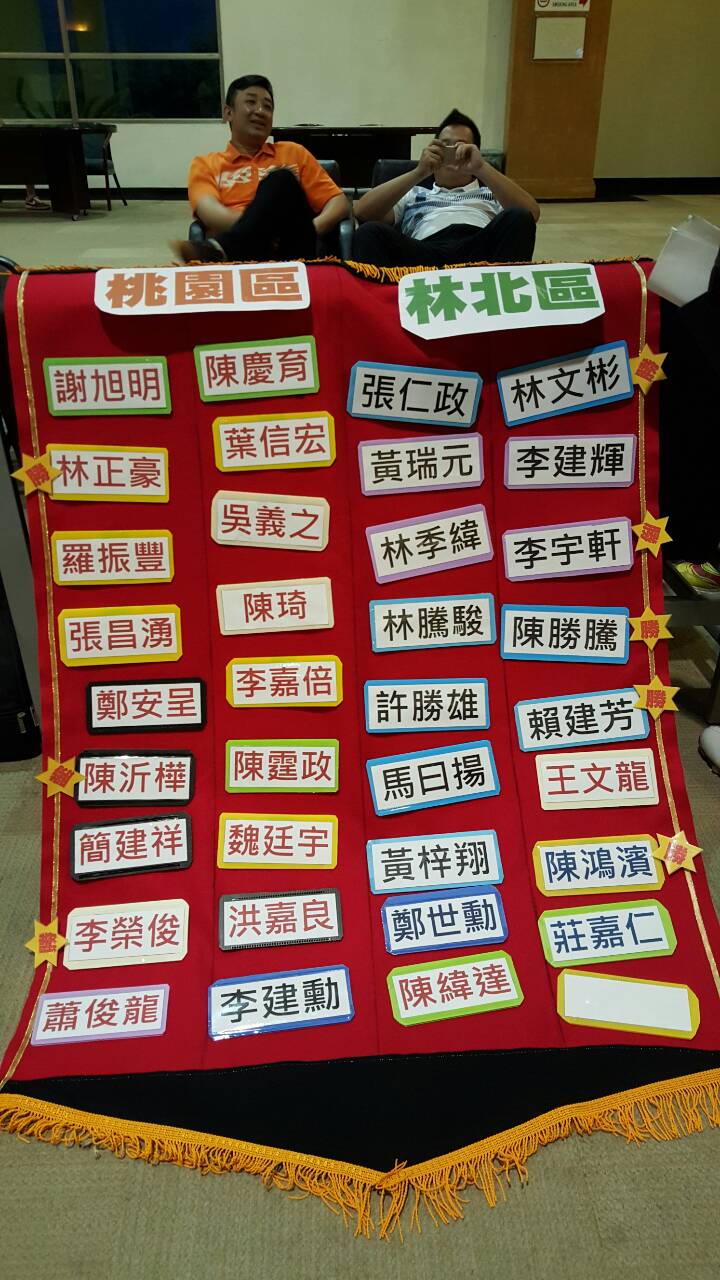 桃園區 林北區
謝旭明 陳慶育 張仁政 林文彬 勝
勝 林正豪 葉信宏 黃瑞元 李建輝
羅振豐 吳義之 林季緯 李宇軒 勝
張昌湧 陳琦 林騰駿 陳勝騰 勝
鄭安呈 李嘉倍 許勝雄 賴建芳 勝
勝 陳沂樺 陳霆政 馬曰揚 王文龍
簡建祥 魏廷宇 黃梓翔 陳鴻濱 勝
勝 李榮俊 洪嘉良 鄭世勳 莊嘉仁
蕭俊龍 李建勳 陳緯達